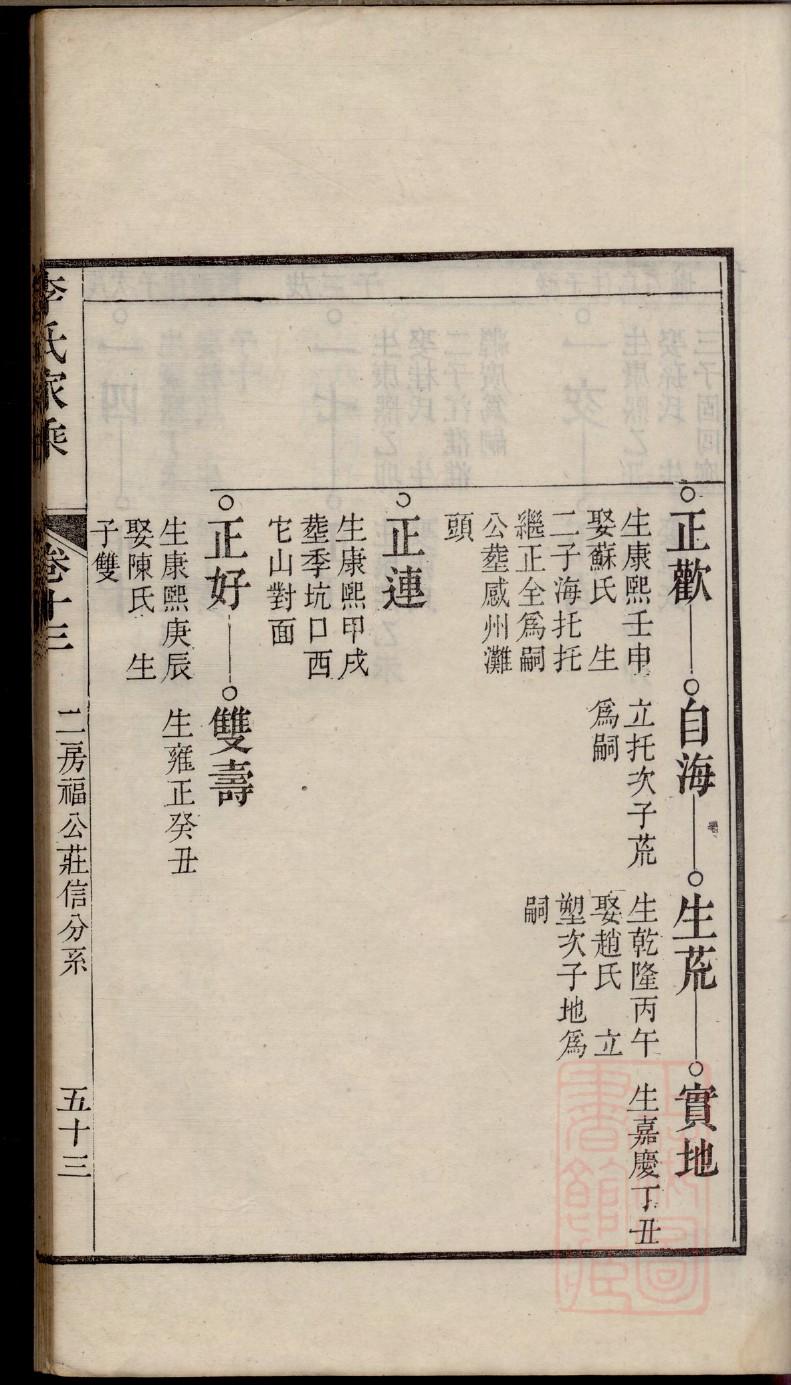 正歡
生康熙壬申
娶蘇氏 生
二子海托托
繼正全爲嗣
公塟感州灘
頭
自海
立托次子荒
爲嗣
生荒
生乾隆丙午
娶趙氏 立
塑次子地爲
嗣
實地
生嘉慶丁丑
正連
生康熙甲戌
塟季坑口西
它山對面
正好
生康熙庚辰
娶陳氏 生
子雙
雙壽
生雍正癸丑
李氏家乘
卷十三
二房福公莊信分系
五十三